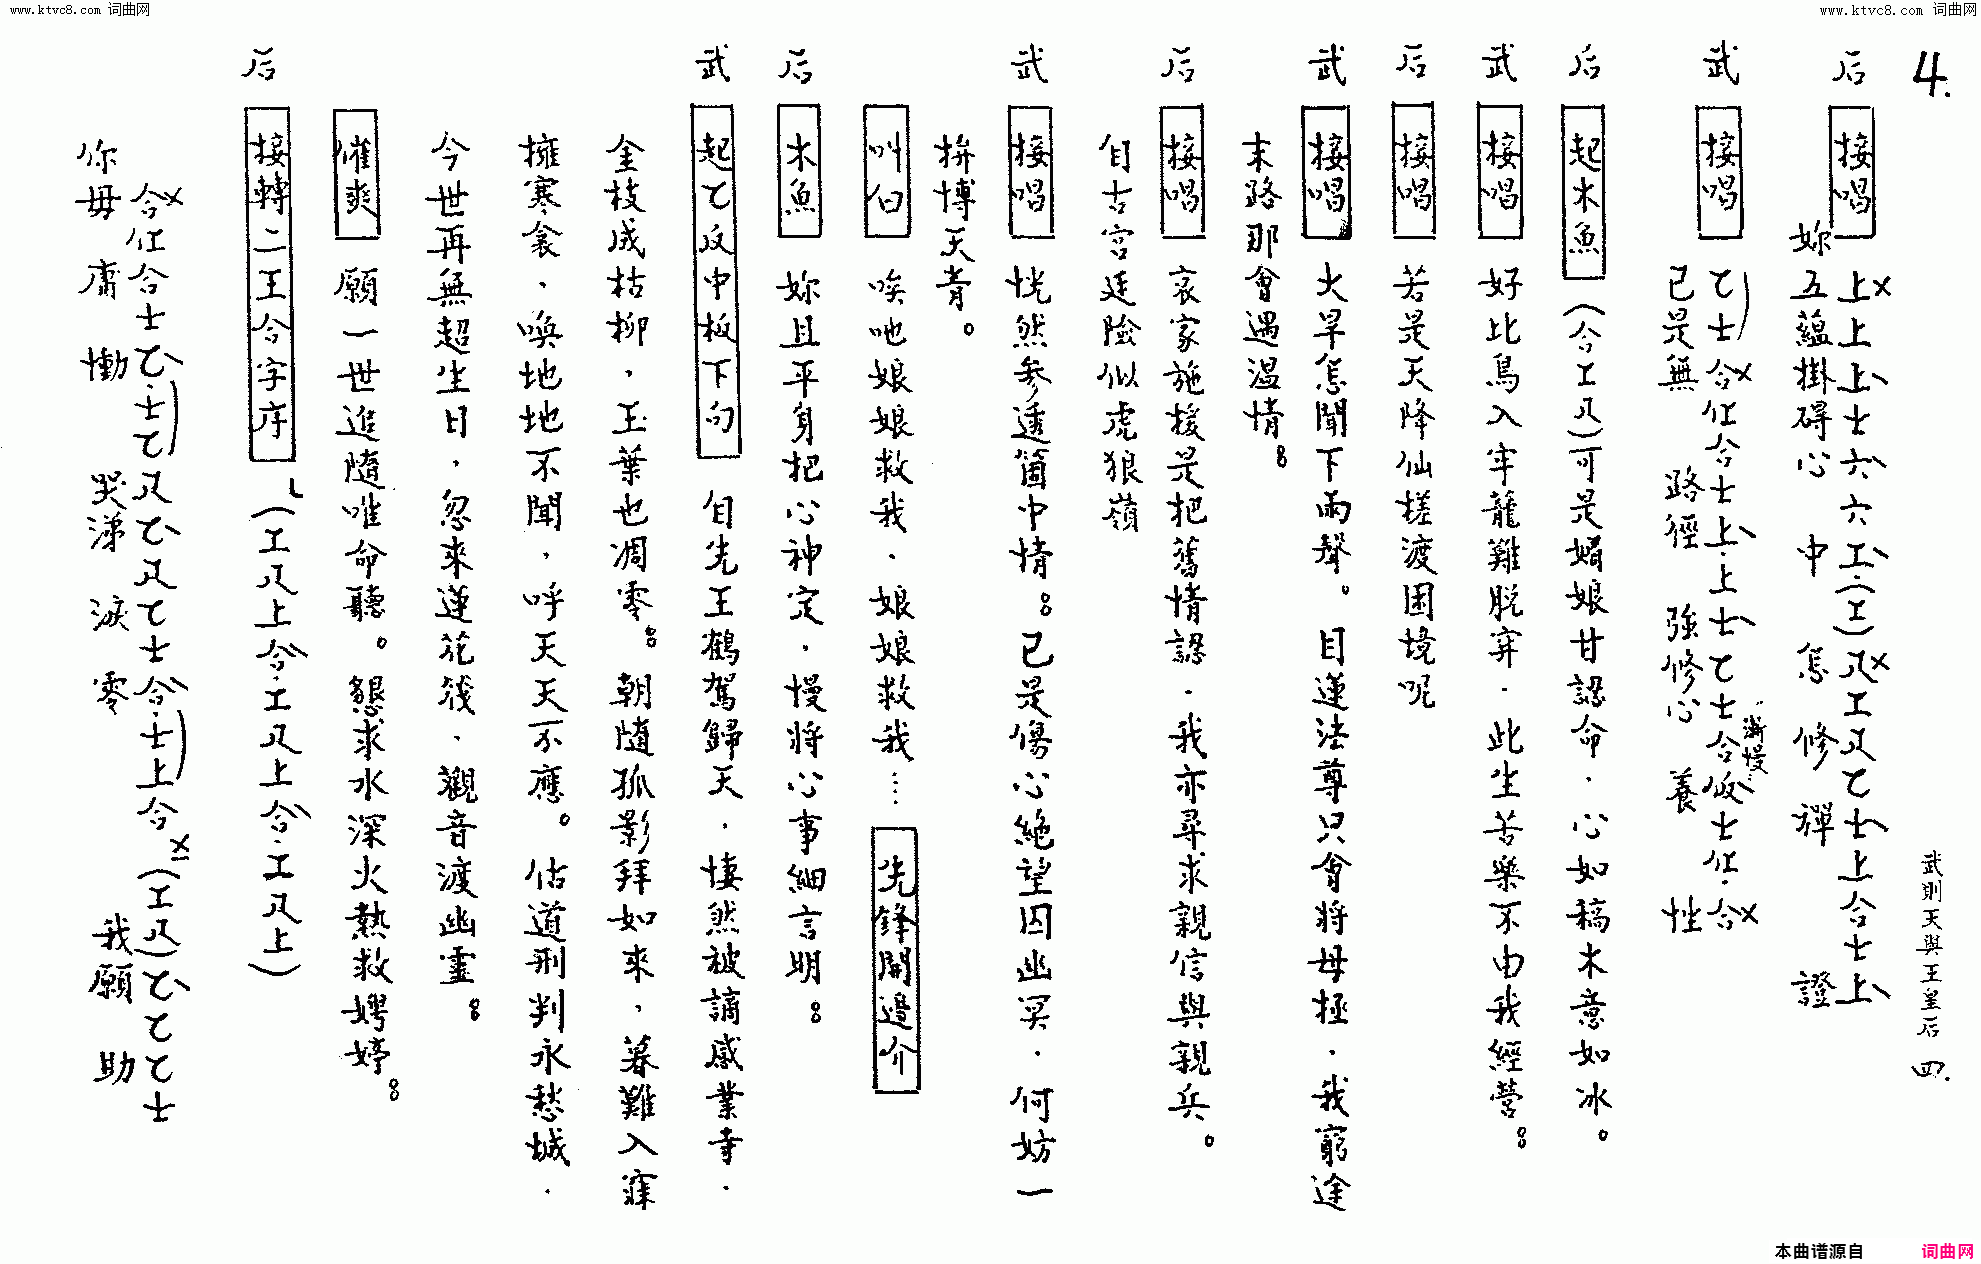 www.ktvc8.com 词曲网
www.ktvc8.com 词曲网
4.
武則天與王皇后 四.
后 接唱 上上上上士六六六工.(工)凡工凡乙士上合士上
妳五蘊掛碍心中怎修禪證
武 接唱 乙士合仕合士上.上士乙士合仮士仕.合
漸慢
已是無路徑強修心養性
后 起木魚 (合工凡)可是媚娘甘認命.心如稿木意如冰。
武 接唱 好比鳥入牢籠難脫弃.此生苦樂不由我經營。
后 接唱 若是天降仙槎渡困境呢
武 接唱 火旱怎聞下雨聲。目蓮法尊只會將母拯.我窮途
末路那會遇温情。
后 接唱 哀家施援是把舊情認.我亦尋求親信與親兵。
自古宮廷險似虎狼嶺
武 接唱 恍然参透箇中情。已是傷心絶望囚幽冥.何妨一
拚博天青。
叫白 唉吔娘娘救我.娘娘救我… 先鋒開邉介
后 木魚 妳且平身把心神定,慢將心事細言明。
武 起乙反中板下句 自先王鶴駕歸天.悽然被謫感業寺.
金枝成枯柳,玉葉也凋零。朝隨孤影拜如來,暮難入寐
擁寒衾.喚地地不聞,呼天天不應。估道刑判永愁城.
今世再無超生日,忽來蓮花筏.觀音渡幽靈。
催爽 願一世追隨唯命聽。懇求水深火熱救娉婷。
后 接轉二王合字序 (工凡上合.工凡上合.工凡上)
合仕合士乙.士乙凡乙凡乙士合.士上合(工凡)乙乙乙士
你毋庸慟哭涕淚零我願助
本曲谱源自 词曲网